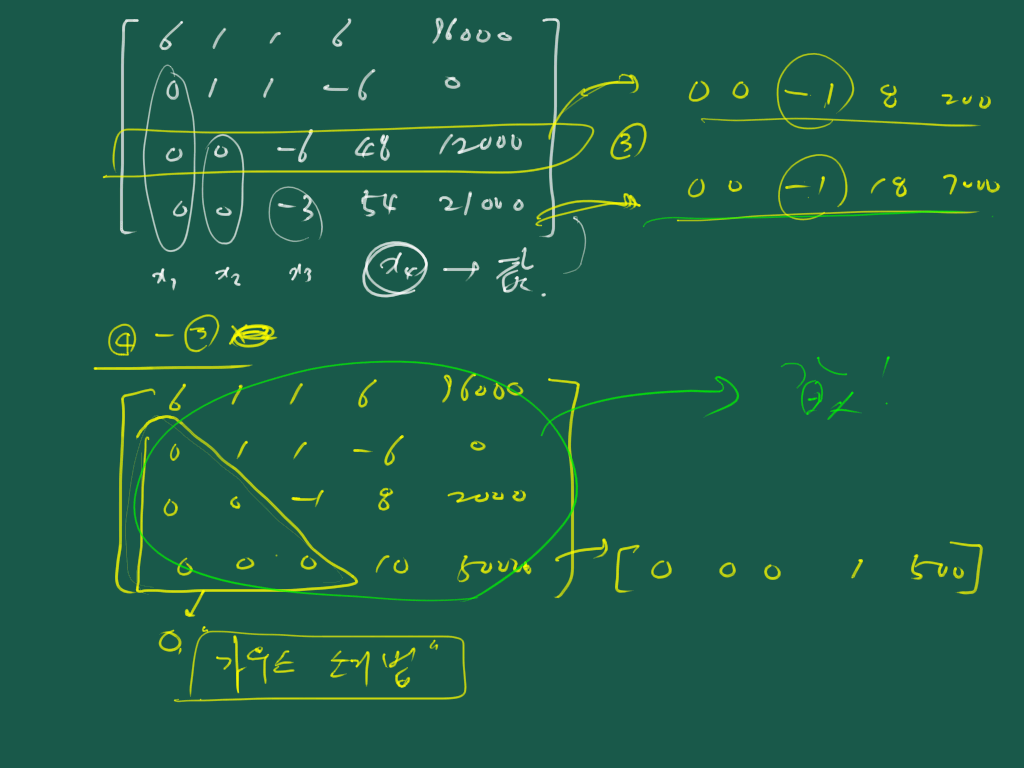 6 1 1 6 16000
0 1 1 -6 0
0 0 -6 48 12000
0 0 -3 54 21000
x₁ x₂ x₃ x₄ →
③
0 0 -1 8 200
0 0 -1 18 7000
④ - ③
6 1 1 6 16000
0 1 1 -6 0
0 0 -1 8 2000
0 0 0 10 5000
[ 0 0 0 1 500 ]
0
"가우스 소거법"